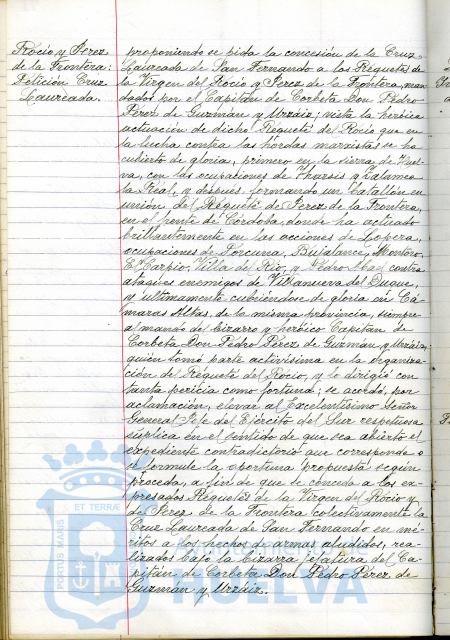 Rocío y Jerez
de la Frontera:
Petición Cruz
Laureada.
proponiendo se pida la concesión de la Cruz
Laureada de San Fernando a los Requetés de
la Virgen del Rocío y Jerez de la Frontera, man-
dados por el Capitán de Corbeta Don Pedro
Pérez de Guzmán y Urzáiz; vista la heróica
actuación de dicho Requeté del Rocío que en
la lucha contra las hordas marxistas se ha
cubierto de gloria, primero en la sierra de Huel-
va, con las ocupaciones de Tharsis y Zalamea
la Real, y después formando un batallón en
unión del Requeté de Jerez de la Frontera,
en el frente de Córdoba, donde ha actuado
brillantemente en las acciones de Lopera,
ocupaciones de Porcuna, Bujalance, Montoro,
El Carpio, Villa del Río, y Pedro Abad contra
ataques enemigos de Villanueva del Duque,
y ultimamente cubriéndose de gloria en Cá-
maras Altas, de la misma provincia, siempre
al mando del bizarro y heróico Capitán de
Corbeta Don Pedro Pérez de Guzmán y Urzáiz,
quién tomó parte activísima en la organiza-
ción del Requeté del Rocío, y le dirigió con
tanta pericia como fortuna; se acordó, por
aclamación, elevar al Excelentísimo Señor
General Jefe del Ejército del Sur respetuosa
súplica en el sentido de que sea abierto el
expediente contradictorio que corresponde o
se formule la oportuna propuesta según
proceda, a fin de que se conceda a los ex-
presados Requetés de la Virgen del Rocío y
de Jerez de la Frontera colectivamente la
Cruz Laureada de San Fernando en mé-
ritos a los hechos de armas aludidos, rea-
lizados bajo la bizarra jefatura del Ca-
pitán de Corbeta Don Pedro Pérez de
Guzmán y Urzáiz.
PORTUS MARIS
ET TERRÆ
Ayuntamiento de
HUELVA